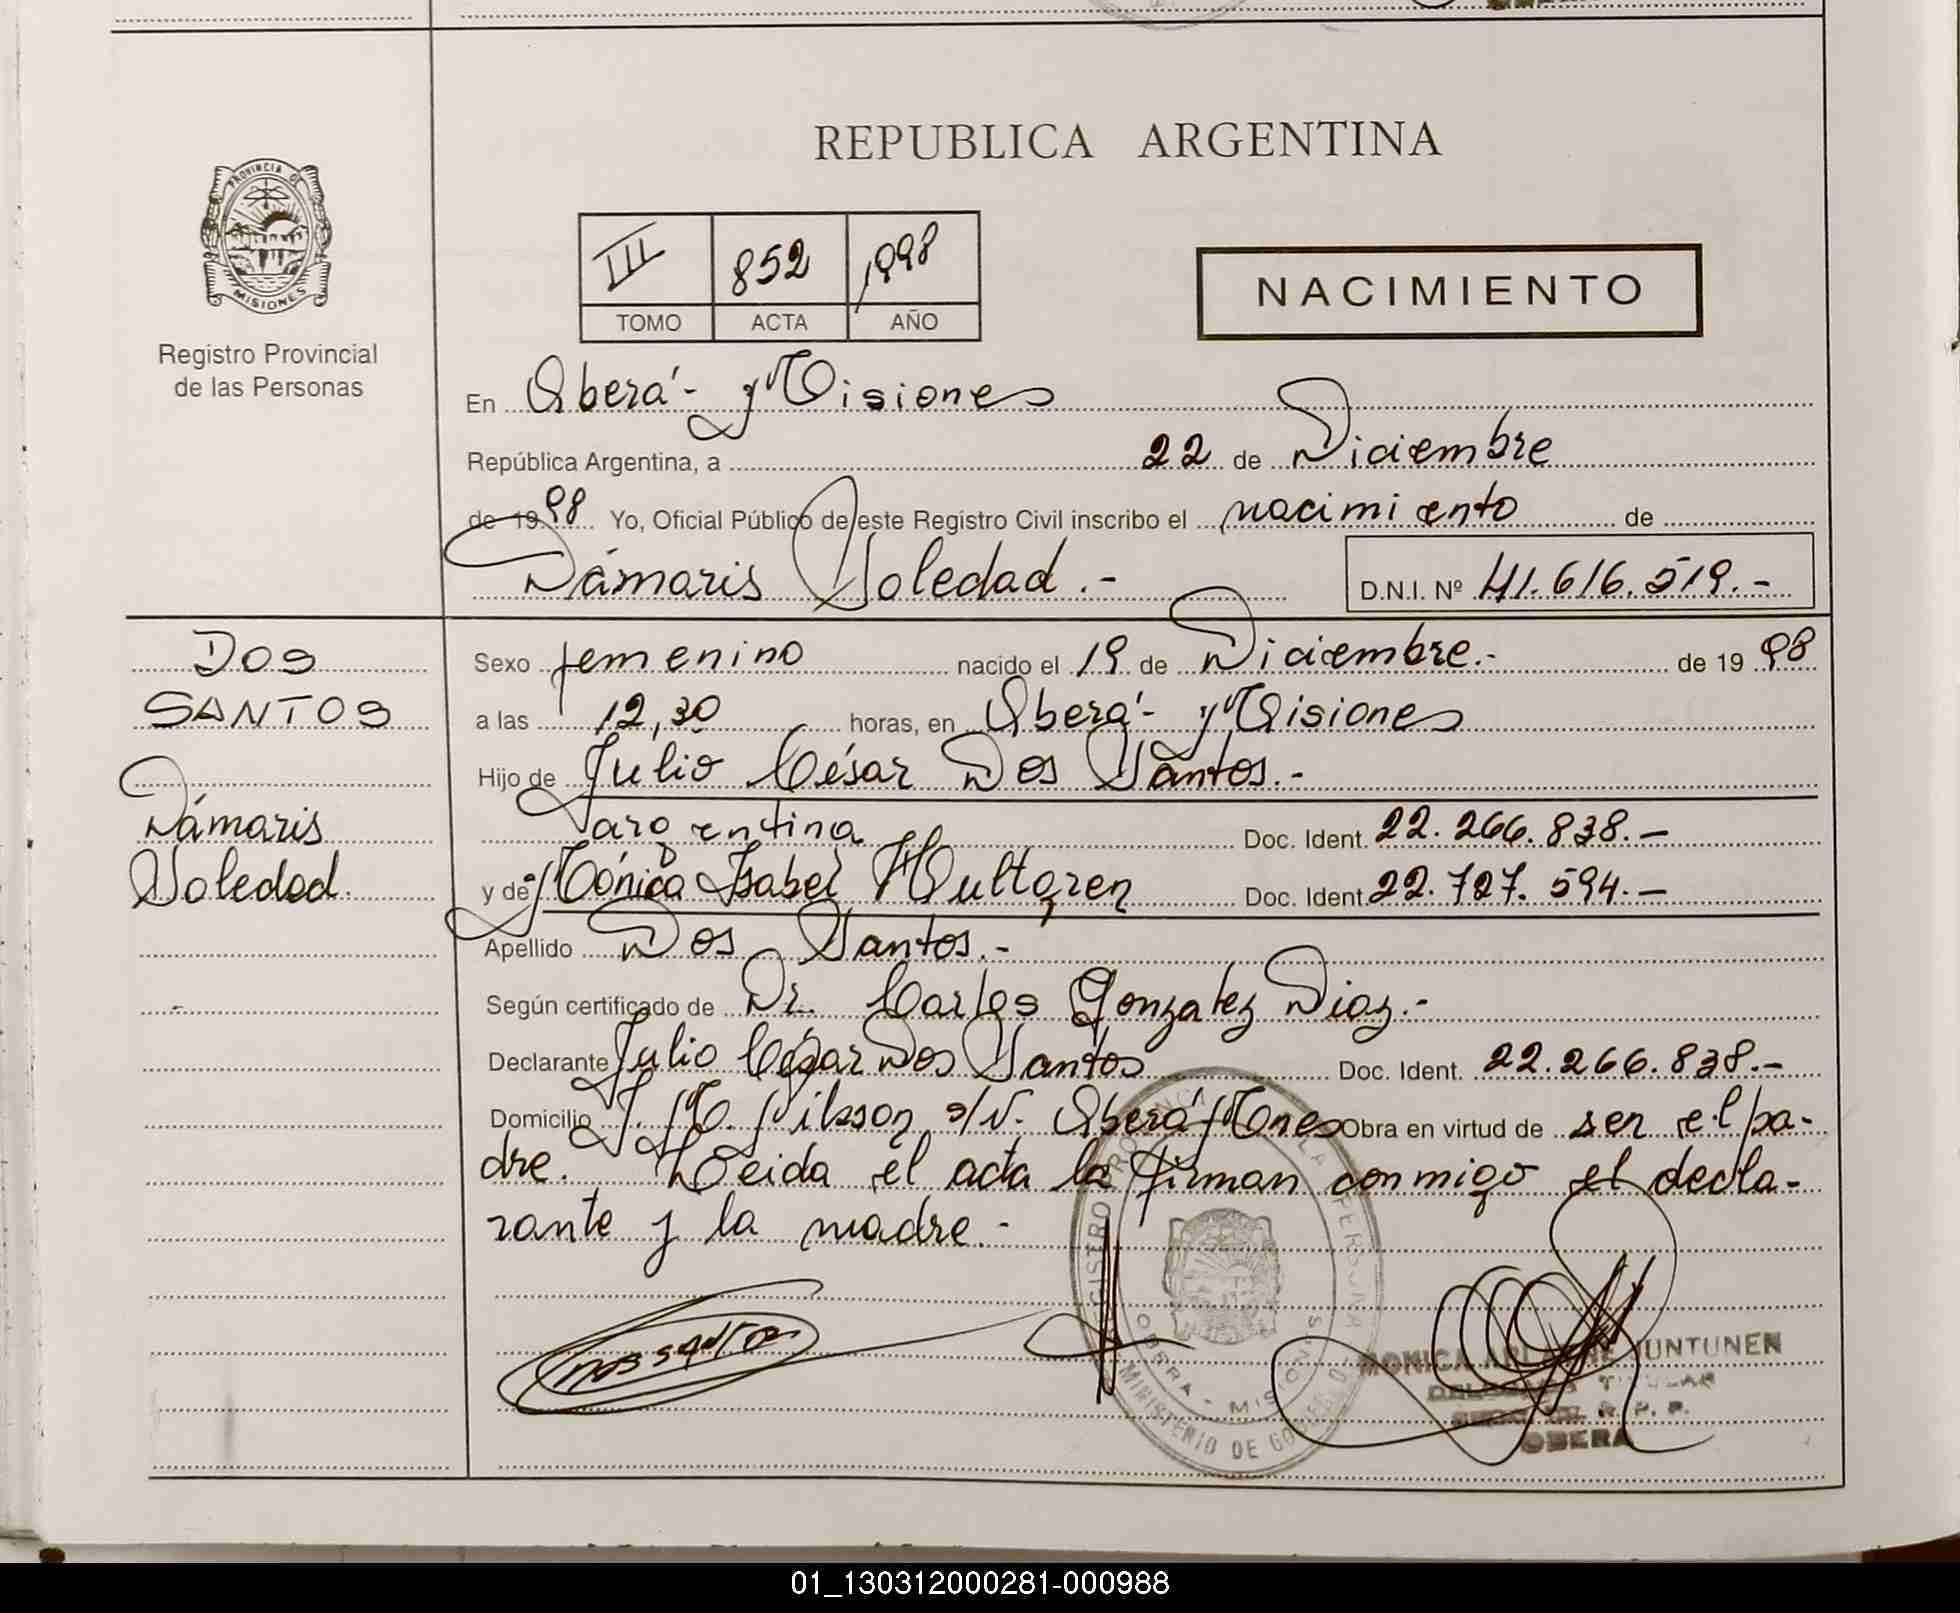 REPUBLICA ARGENTINA
PROVINCIA DE
MISIONES
Registro Provincial
de las Personas
III 852 1998
TOMO ACTA AÑO
NACIMIENTO
En Oberá - Misiones
República Argentina, a 22 de Diciembre
de 19 98 Yo, Oficial Público de este Registro Civil inscribo el nacimiento de
Dámaris Soledad.- D.N.I. Nº 41.616.519.-
DOS
SANTOS
Dámaris
Soledad.
Sexo femenino nacido el 19 de Diciembre.- de 19 98
a las 12,30 horas, en Oberá - Misiones
Hijo de Julio César Dos Santos.-
argentina Doc. Ident. 22.266.838.-
y de Mónica Isabel Hultgren Doc. Ident. 22.727.594.-
Apellido Dos Santos.-
Según certificado de Dr. Carlos Gonzalez Diaz.-
Declarante Julio César Dos Santos Doc. Ident. 22.266.838.-
Domicilio J. M. Nilsson s/N. Oberá Mnes Obra en virtud de ser el pa-
dre. Leida el acta la firman conmigo el decla-
rante y la madre.-
Dos santos
OBERA - MISIONES
MINISTERIO DE GOBIERNO
MONICA ARIANNE JUNTUNEN
R. P. P.
OBERA
01_130312000281-000988